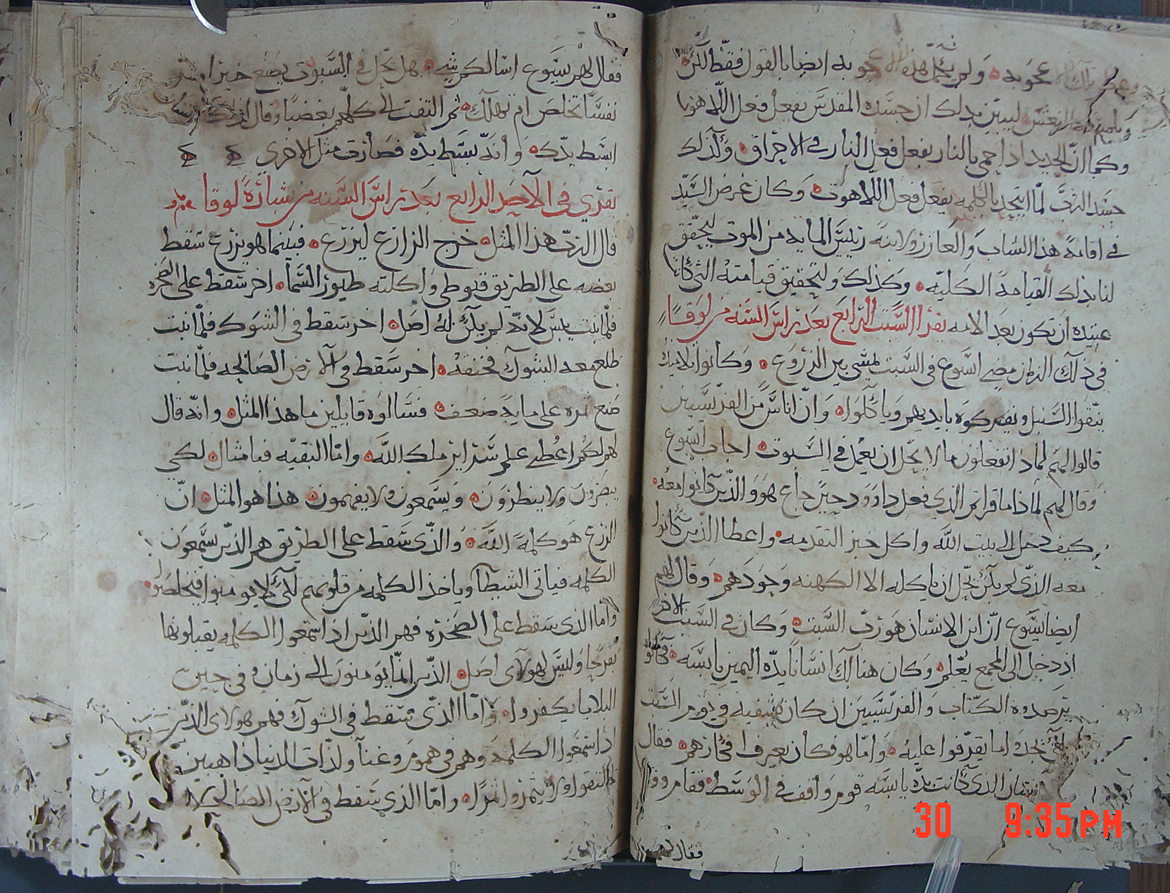 عجوبه ولم يكمل هذه الاعجوبه ايضا بالقول فقط لكن
النعش ليبين بذلك ان جسده المقدس يفعل فعل اللاهوت
وكما ان الحديد اذا حمي بالنار يفعل فعل النار في الاحراق وكذلك
جسد الرب لما اتحد بالكلمه يفعل فعل اللاهوت وكان غرض السيد
في اقامة هذا الشاب والعازر وابنة رييس الجماعه من الموت ليحقق
لنا بذلك القيامة الكليه وكذلك ولتحقيق قيامته التي كانت
عتيده ان تكون بعد الامه نقرا السبت الرابع بعد راس السنه من لوقا
في ذلك الزمان مضى ايسوع في السبت يمشي بين الزروع وكانوا تلاميذه
ينقوا السنبل ويفركوه بايديهم وياكلوا وان اناس من الفريسيين
قالوا لهم لماذا تفعلون ما لا يحل ان يعمل في السبوت اجاب ايسوع
وقال لهم لماذا ما قراتم الذي فعل داوود حين جاع هو والذين كانوا معه
كيف دخل الى بيت الله واكل خبز التقدمه واعطا الذين كانوا
معه الذي لم يكن يحل ان ياكله الا الكهنه وحدهم وقال لهم
ايضا يسوع ان ابن الانسان هو رب السبت وكان في السبت الاخر
اذ دخل الى المجمع يعلم وكان هناك انسانا يده اليمين يابسه فكانوا
يترصدوه الكتاب والفريسيين ان كان يشفيه في يوم السبت
لكي يجدوا ما يقرفوا عليه واما هو فكان يعرف افكارهم فقال
للذي كانت يده يابسه قوم واقف في الوسط فقام ووقف
فقال لهم
فقال لهم يسوع اسالكم شيه هل يحل في السبوت يصنع خير ام شر
نفسا تخلص ام تهلك ثم التفت الى كلهم بغضب وقال
ابسط يدك وانه بسط يده فصارت مثل الاخرى
نقرى في الاحد الرابع بعد راس السنه من بشارة لوقا
قال الرب هذا المثل خرج الزارع ليزرع فبينما هو يزرع سقط
بعضه على الطريق فتوطى واكلته طيور السما واخر سقط على الصخره
فلما نبت يبس لانه لم يكن له اصل اخر سقط في الشوك فلما نبت
طلع معه الشوك فخنقه اخر سقط في الارض الصالحه فلما نبت
صنع ثمره على مايه ضعف فسالوه قايلين ما هذا المثل وانه قال
لهم لكم اعطي علم سراير ملك الله واما البقيه فبامثال لكي
ينظرون ولا ينظرون ويسمعون ولا يفهمون هذا هو المثل ان
الزرع هو كلمة الله والذي سقط على الطريق هم الذين يسمعون
الكلمه فياتي الشيطان وياخذ الكلمه من قلوبهم لكي لا يومنوا فيخلصوا
واما الذي سقط على الصخره فهم الذين اذا سمعوا الكلمه يقبلونها
بفرح وليس لهولاي اصل الذين انما يومنون الى زمان وفي حين
البلايا يكفروا واما الذي سقط في الشوك فهم هولاي الذين
اذا سمعوا الكلمه وهم في هموم وغنا ولذات الدنيا ذاهبين
ولا يثمروا ثمرا واما الذي سقط في الارض الصالحه
30 9:35PM